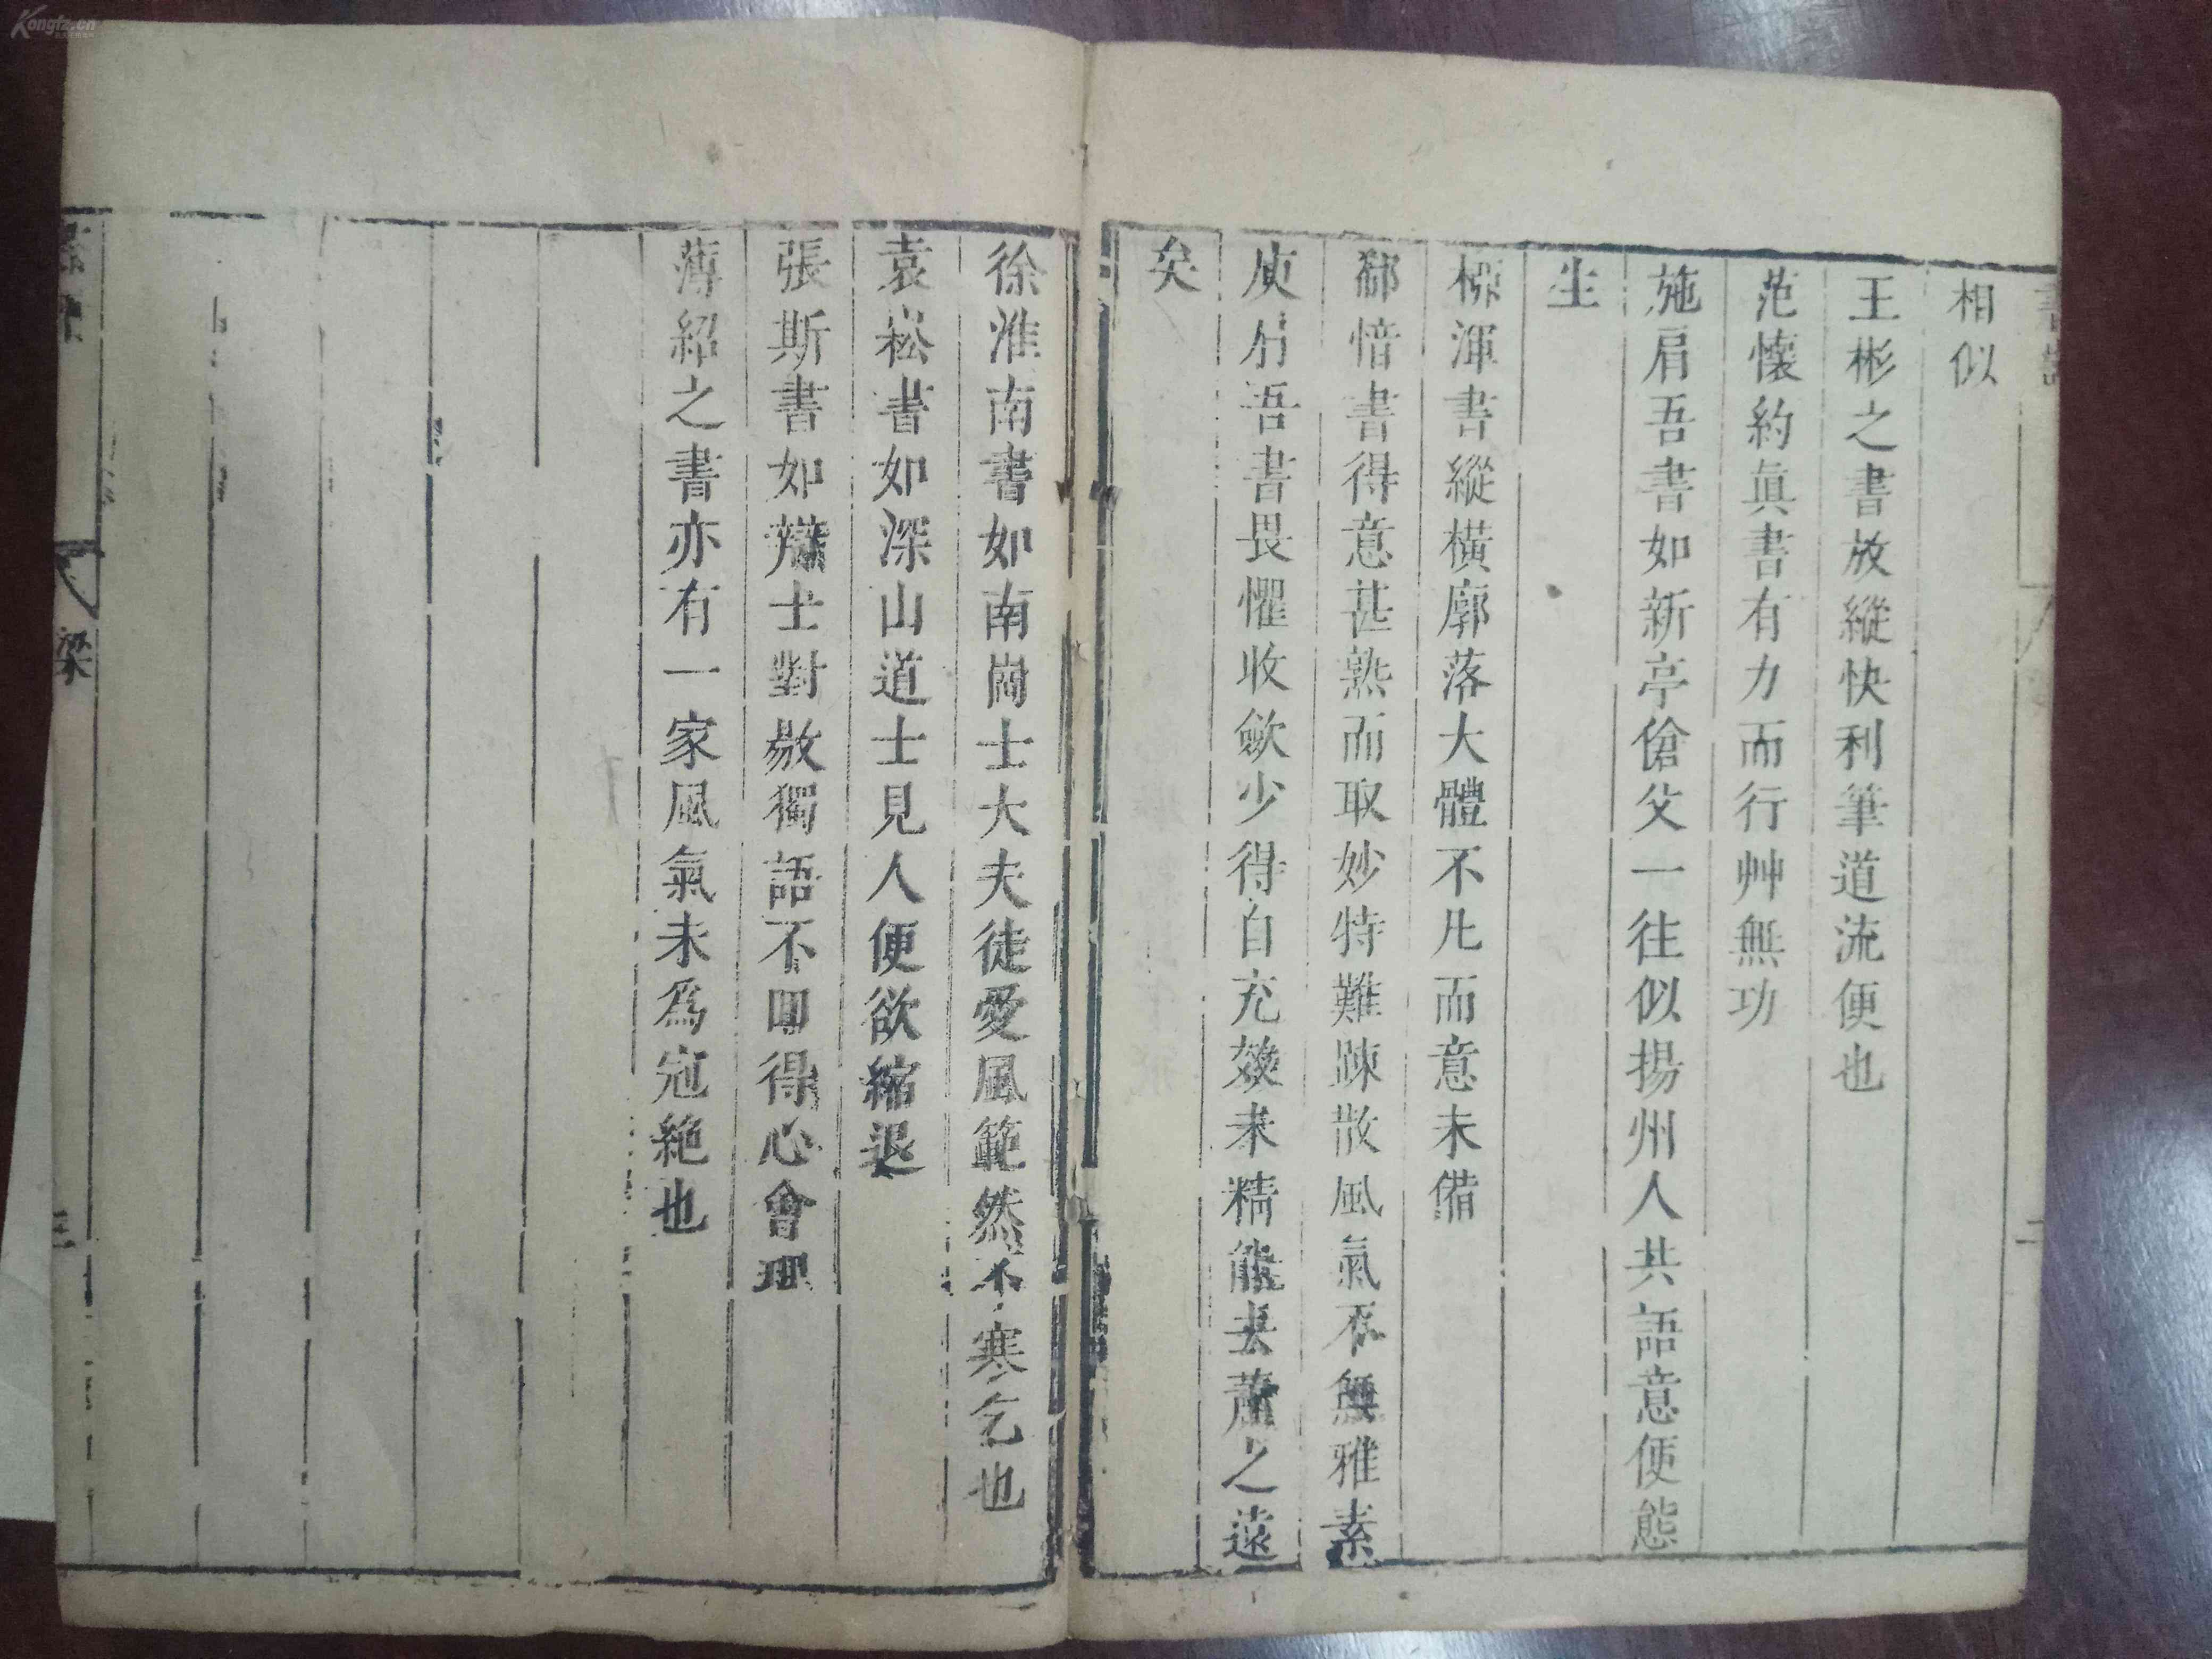 相似
王彬之書放縱快利筆道流便也
范懷約眞書有力而行艸無功
施肩吾書如新亭傖父一往似揚州人共語意便態
生
柳渾書縱橫廓落大體不凡而意未備
郗愔書得意甚熟而取妙特難踈散風氣不無雅素
庾肩吾書畏懼收歛少得自充𤕤未精能去蕭之遠
矣
徐淮南書如南崗士大夫徒愛風範然不寒乞也
袁崧書如深山道士見人便欲縮退
張斯書如辯士對敭獨語不囬得心會理
薄紹之書亦有一家風氣未爲冠絶也
梁
三
Kongfz.cn